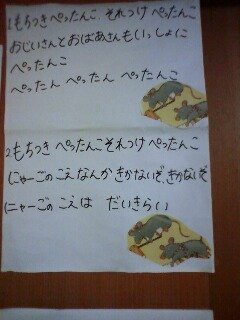 1もちつき ぺったんこ、それつけ ぺったんこ
おじいさんと おばあさんも いっしょに
ぺったんこ
ぺったん ぺったん ぺったんこ
2もちつき ぺったんこ それつけ ぺったんこ
にゃーごの こえなんか きかないぞ、きかないぞ
ニャーゴの こえは だいきらい